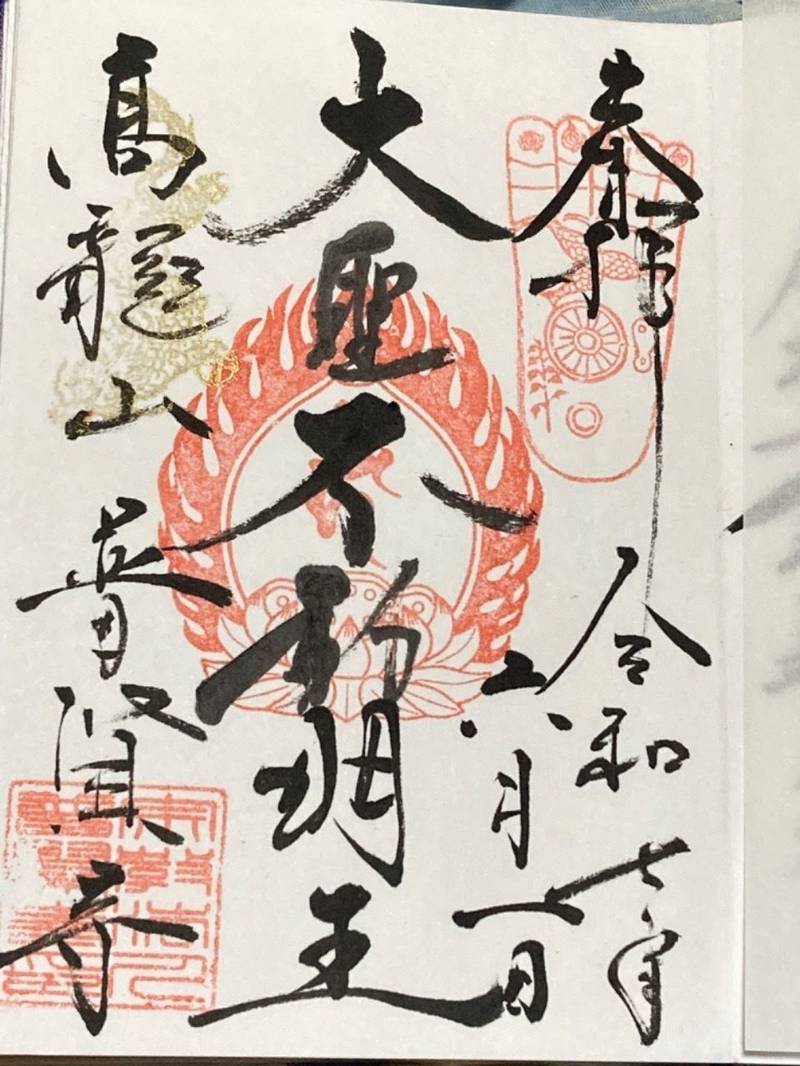 奉拝
令和七年
六月一日
大聖不動明王
高龍山
普賢寺